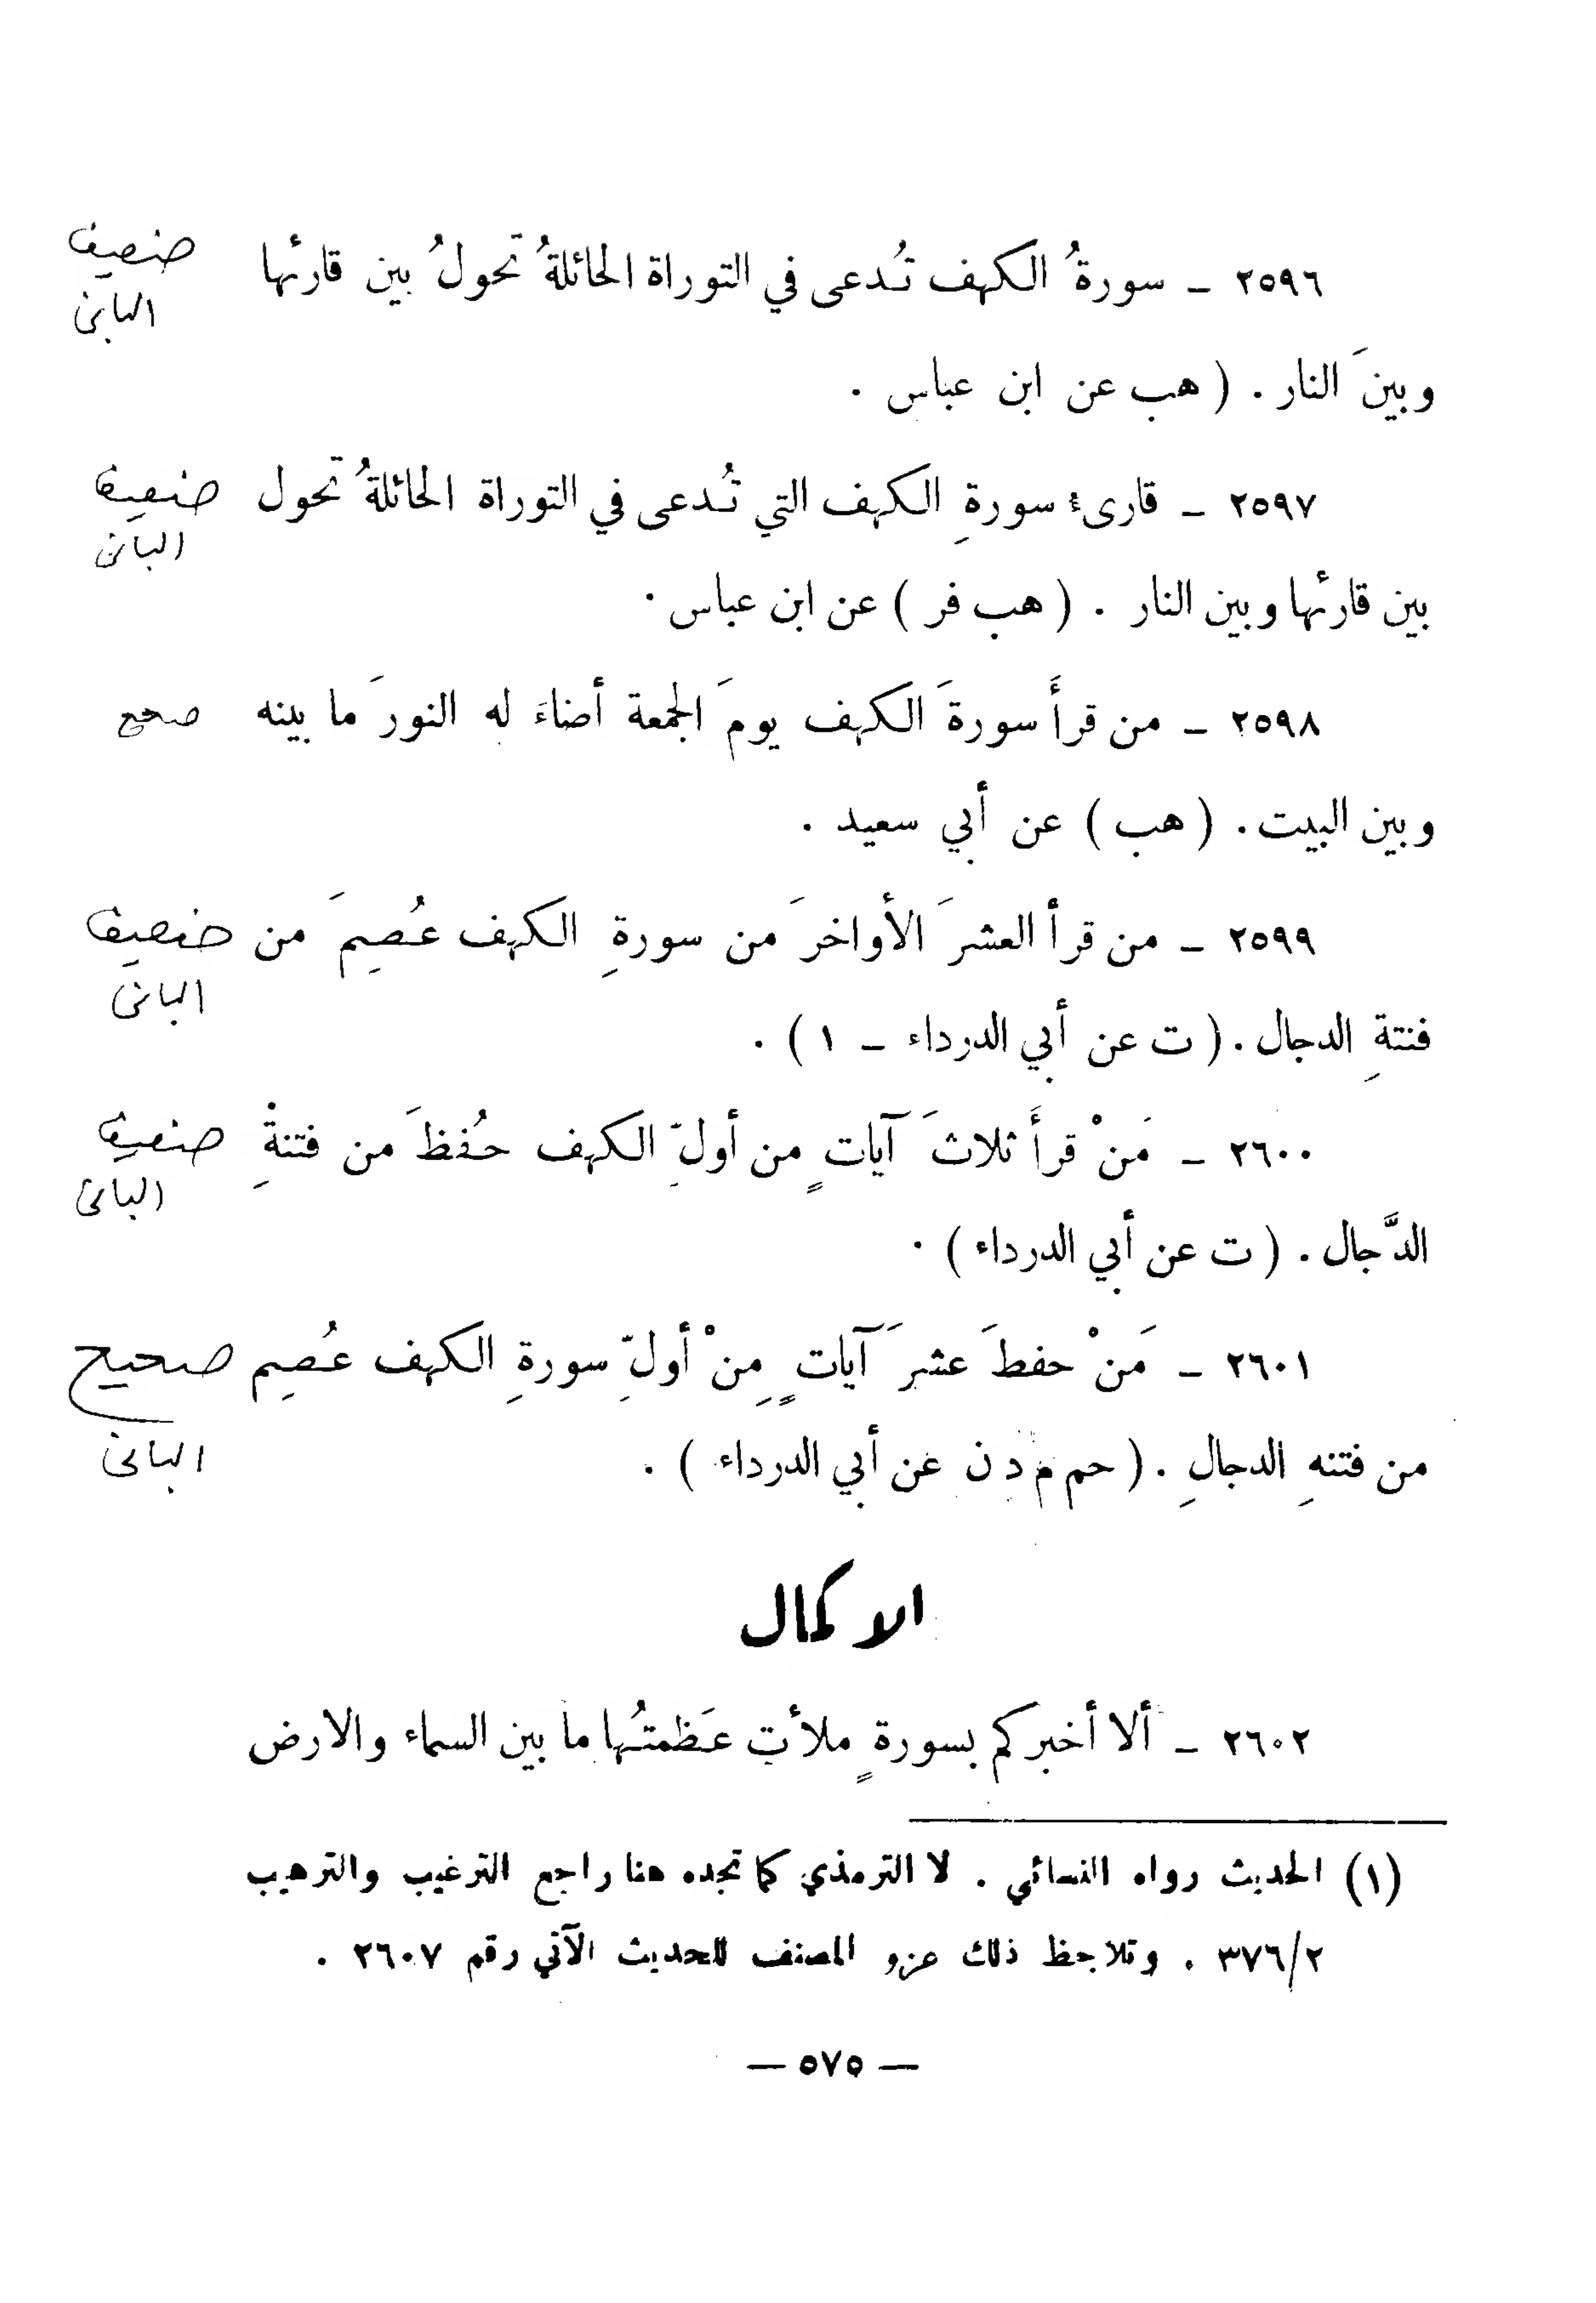 ٢٥٩٦ - سورةُ الكهف تُدعى في التوراة الحائلةُ تَحولُ بين قارئها ضعيف
البانى
وبينَ النار . ( هب عن ابن عباس .
٢٥٩٧ - قارىء سورةِ الكهف التي تُدعى في التوراة الحائلةُ تَحول ضعيف
البانى
بين قارئها وبين النار . ( هب فر ) عن ابن عباس .
٢٥٩٨ - من قرأَ سورةَ الكهف يومَ الجمعة أضاءَ له النورَ ما بينه صحح
وبين البيت . ( هب ) عن أبي سعيد .
٢٥٩٩ - من قرأ العشرَ الأواخرَ من سورةِ الكهف عُصِمَ من ضعيف
البانى
فتنةِ الدجال . ( ت عن أبي الدرداء - ١ ) .
٢٦٠٠ - مَنْ قرأَ ثلاثَ آياتٍ من أولِّ الكهف حُفظَ من فتنةِْ ضعيف
البانى
الدَّجال . ( ت عن أبي الدرداء ) .
٢٦٠١ - مَنْ حفظَ عشرَ آياتٍ مِنْ أولِّ سورةِ الكهف عُصِم صحيح
البانى
من فتنهِ الدجالِ . ( حم م د ن عن أبي الدرداء ) .
الاكمال
٢٦٠٢ - ألا أخبركم بسورةٍ ملأت عَظمتُها ما بين السماء والارض
(١) الحديث رواه النسائي . لا الترمذي كما تجده هنا راجع الترغيب والترهيب
٣٧٦/٢ . وتلاحظ ذلك عزو المصنف للحديث الآتي رقم ٢٦٠٧ .
— ٥٧٥ —